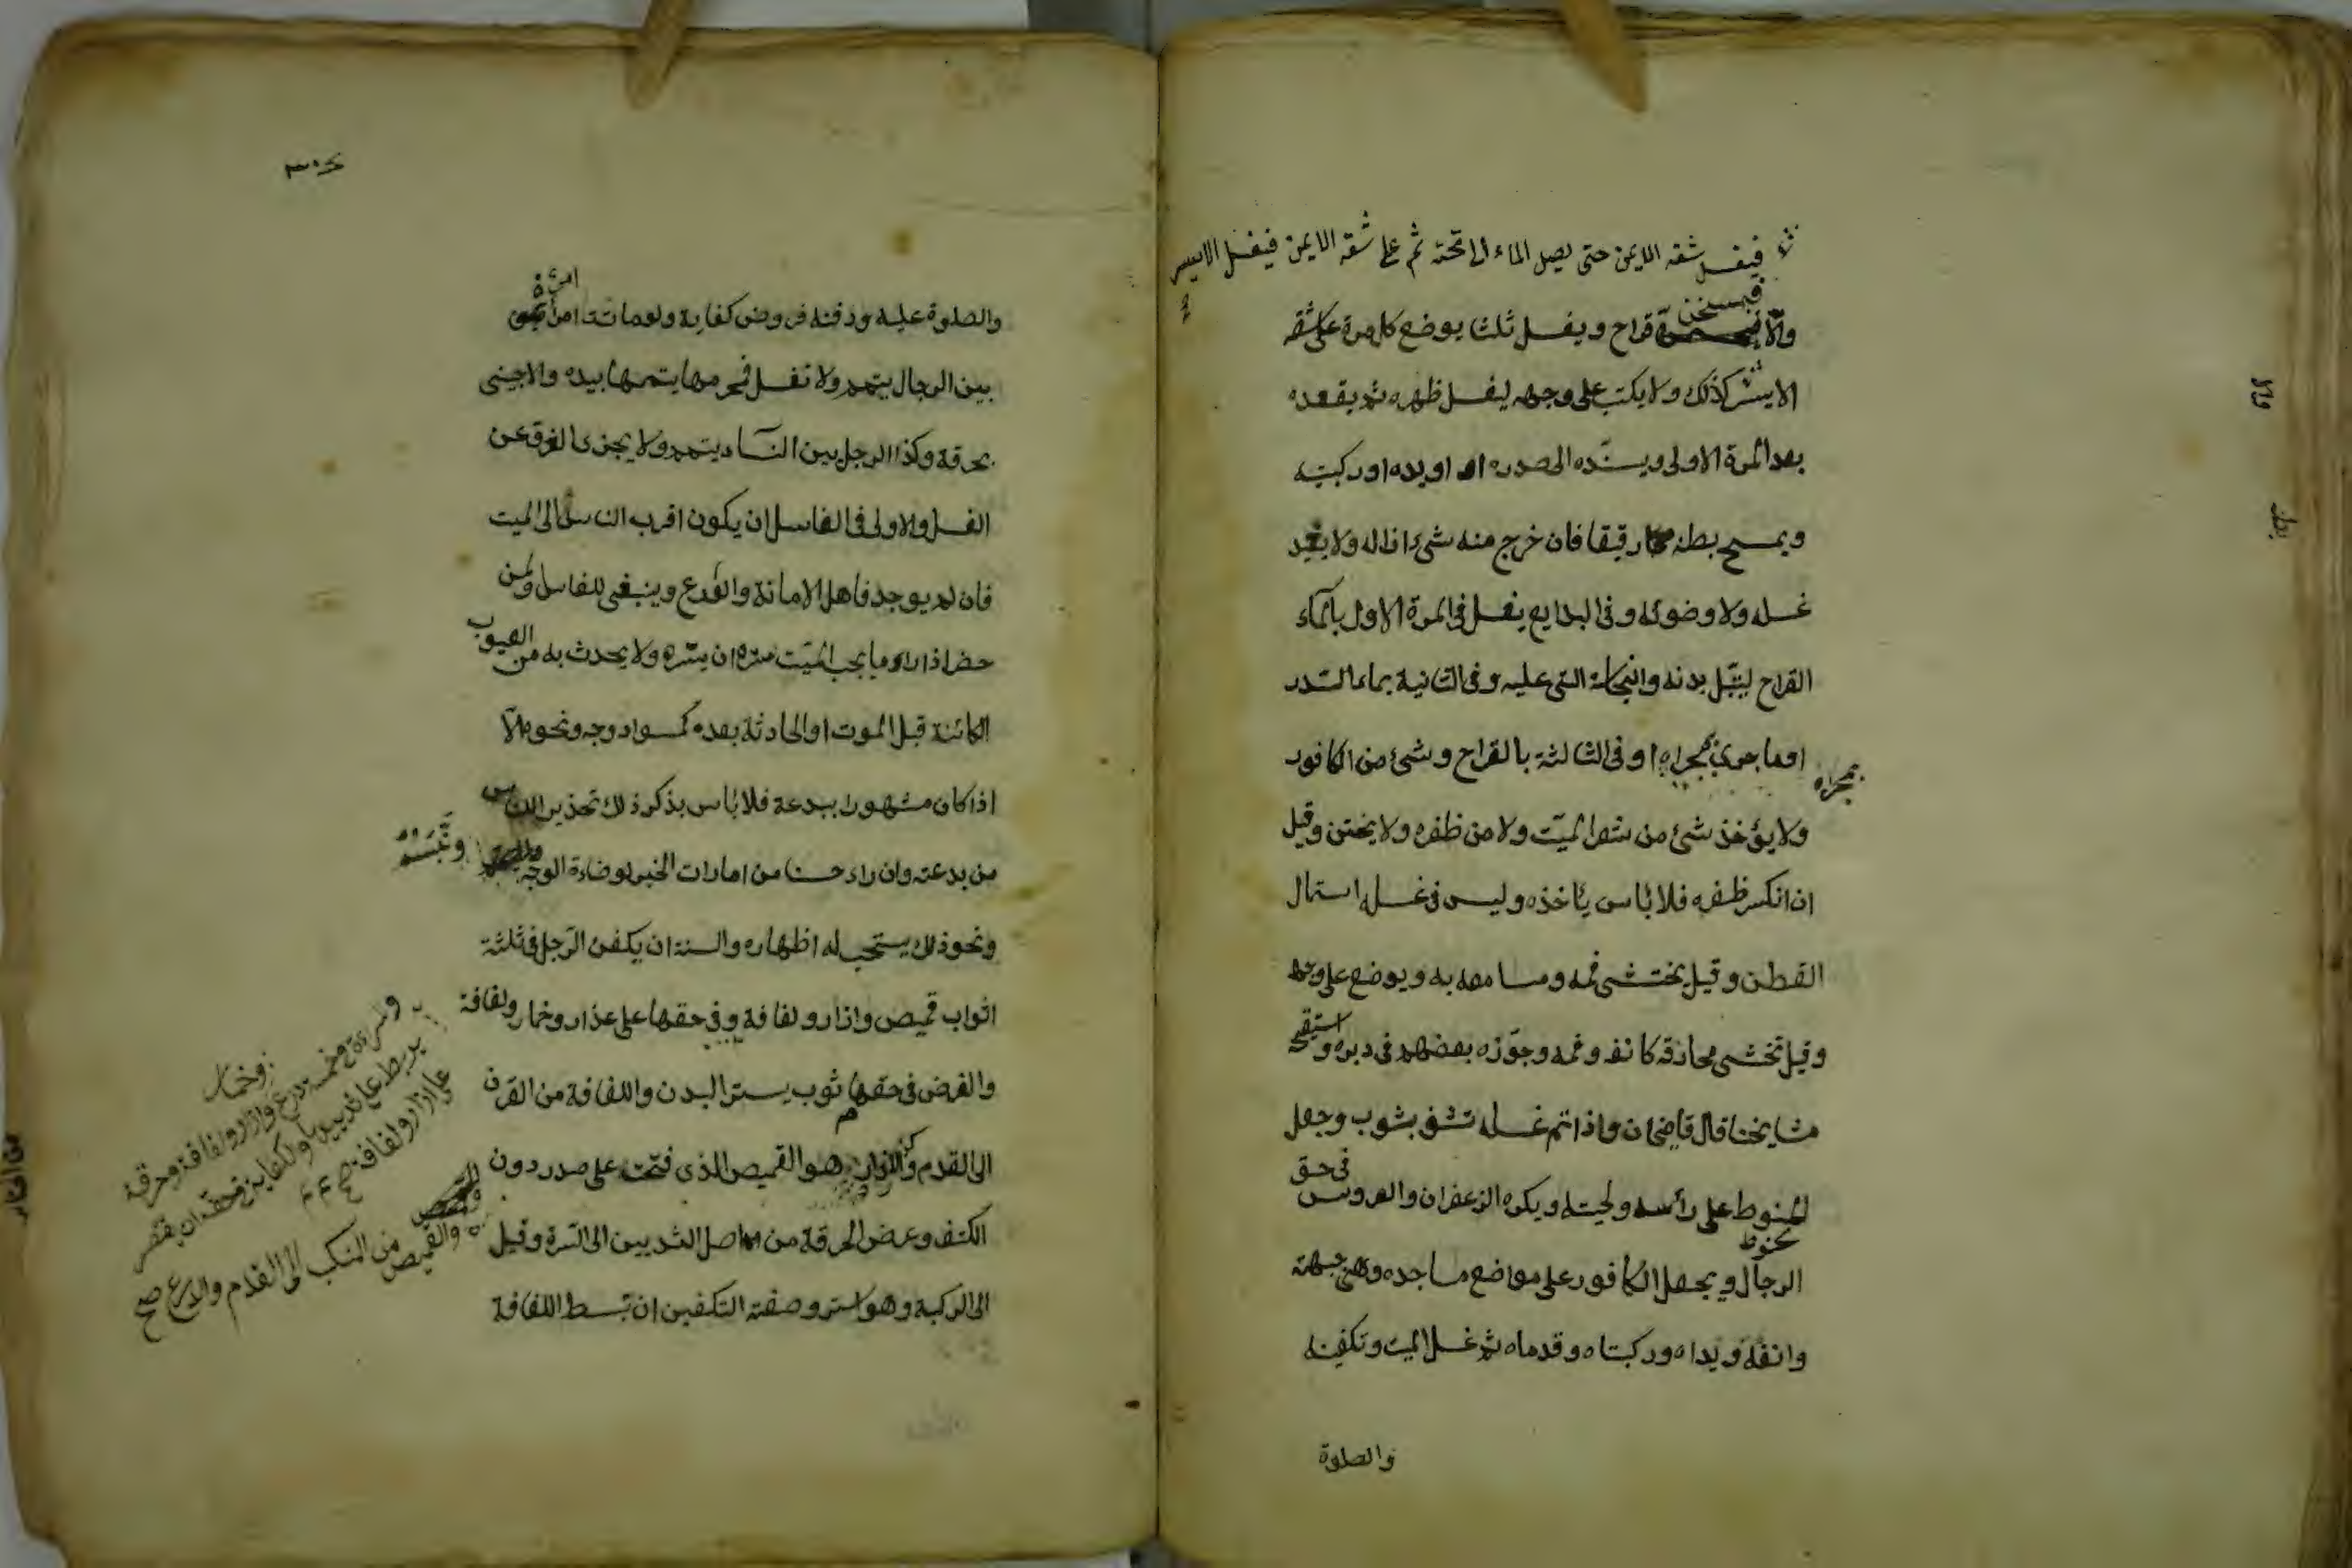 فيغسل شقه الايمن حتى يصل الماء الى تحته ثم على شقه الايمن فيغسل الايسر
فيسخن
والا قراح ويغسل ثلثا يوضع كل مرة على شقه
الايسر كذلك ولا يكتب على وجهه ليغسل ظهره ثم يقعده
بعد المرة الاولى ويسنده الى صدره او يده او ركبتيه
ويمسح بطنه رقيقا فان خرج منه شئ ازاله ولا يعيد
غسله ولا وضوئه وفى البدايع يغسل فى المرة الاول بالماء
القراح ليبتل بدنه والنجاسة التى عليه وفى الثانية بماء السدر
او ما جرى مجراه وفى الثالثة بالقراح وشئ من الكافور
مجراه
ولا يؤخذ شئ من شعر الميت ولا من ظفره ولا يختن وقيل
ان انكسر ظفره فلا بأس يأخذه وليس فى غسله استعمال
القطن وقيل يختشى فمه ومسامعه به ويوضع على وجهه
وقيل تخشى مخارقه كانفه وفمه وجوزه بعضهم فى دبره واستقبحه
مشايخنا قال قاضيخان واذا تم غسله تنشف بثوب وجعل
الحنوط على رأسه ولحيته ويكره الزعفران والورس فى حق
الرجال ويجعل الكافور على مواضع مساجده وهى جبهته
وانفه ويداه وركبتاه وقدماه ثم غسل الميت وتكفينه
والصلوة
والصلوة عليه ودفنه فروض كفاية ولو ماتت امرأة
بين الرجال يتيمم ولا تغسل فمحرمها يتممها بيده والاجنبى
بخرقة وكذا الرجل بين النساء يتيمم ولا يجزى الغرق عن
الغسل والاولى فى الغاسل ان يكون اقرب الناس الى الميت
فان لم يوجد فاهل الامانة والورع وينبغى للغاسل ولمن
حضر اذا راى ما يجب الميت ستره ان يستره ولا يحدث به من العيوب
الكائنة قبل الموت او الحادثة بعده كسواد وجه ونحوه الا
اذا كان مشهورا ببدعة فلا بأس بذكر ذلك تحذير الناس
من بدعته وان راى حسنا من امارات الخير لوضاءة الوجه وتبسمه
ونحو ذلك يستحب له اظهاره والسنة ان يكفن الرجل فى ثلثة
اثواب قميص وازار ولفافة وفى حقها على هذا وخمار ولفافة
والفرض فى حقهما ثوب يستر البدن واللفافة من القرن
الى القدم هو القميص الذى فتحت على صدر دون
الكتف وعرض الخرقة من اصل الثديين الى السرة وقيل
الى الركبة وهو استر وصفة التكفين ان تبسط اللفافة
وخمار
درع وازار ولفافة وخرقة
يربط على ثدييها والكفاية فى حقه ان يقتصر
على ازار ولفافة صح
والقميص من المنكب الى القدم والدرع صح